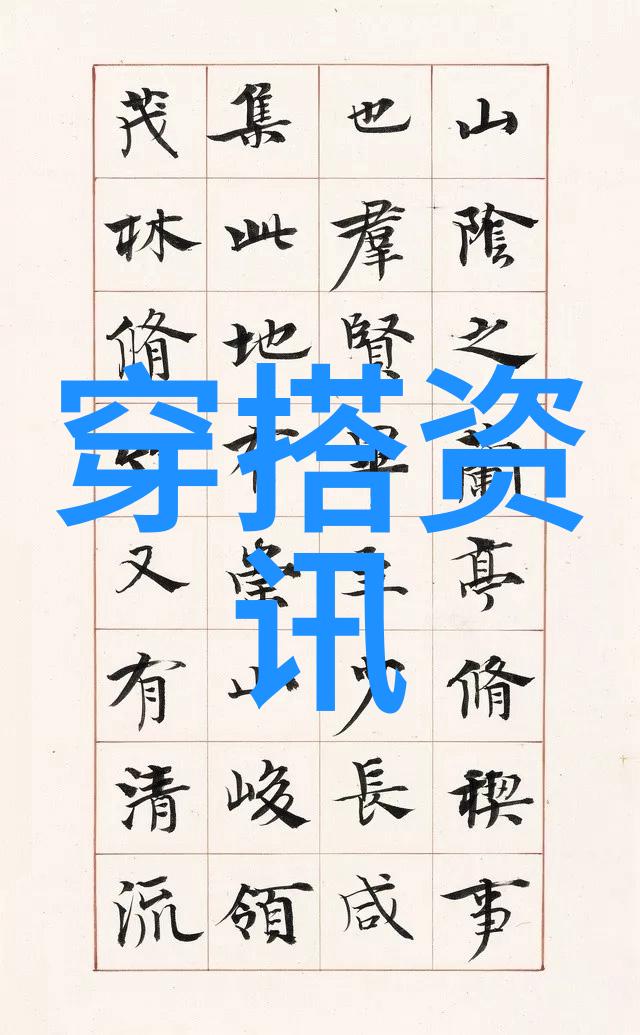 山陰之蘭亭脩稧事
也羣賢畢至少長咸
集此地有崇山峻領
茂林脩又有清流
穿搭资
讯